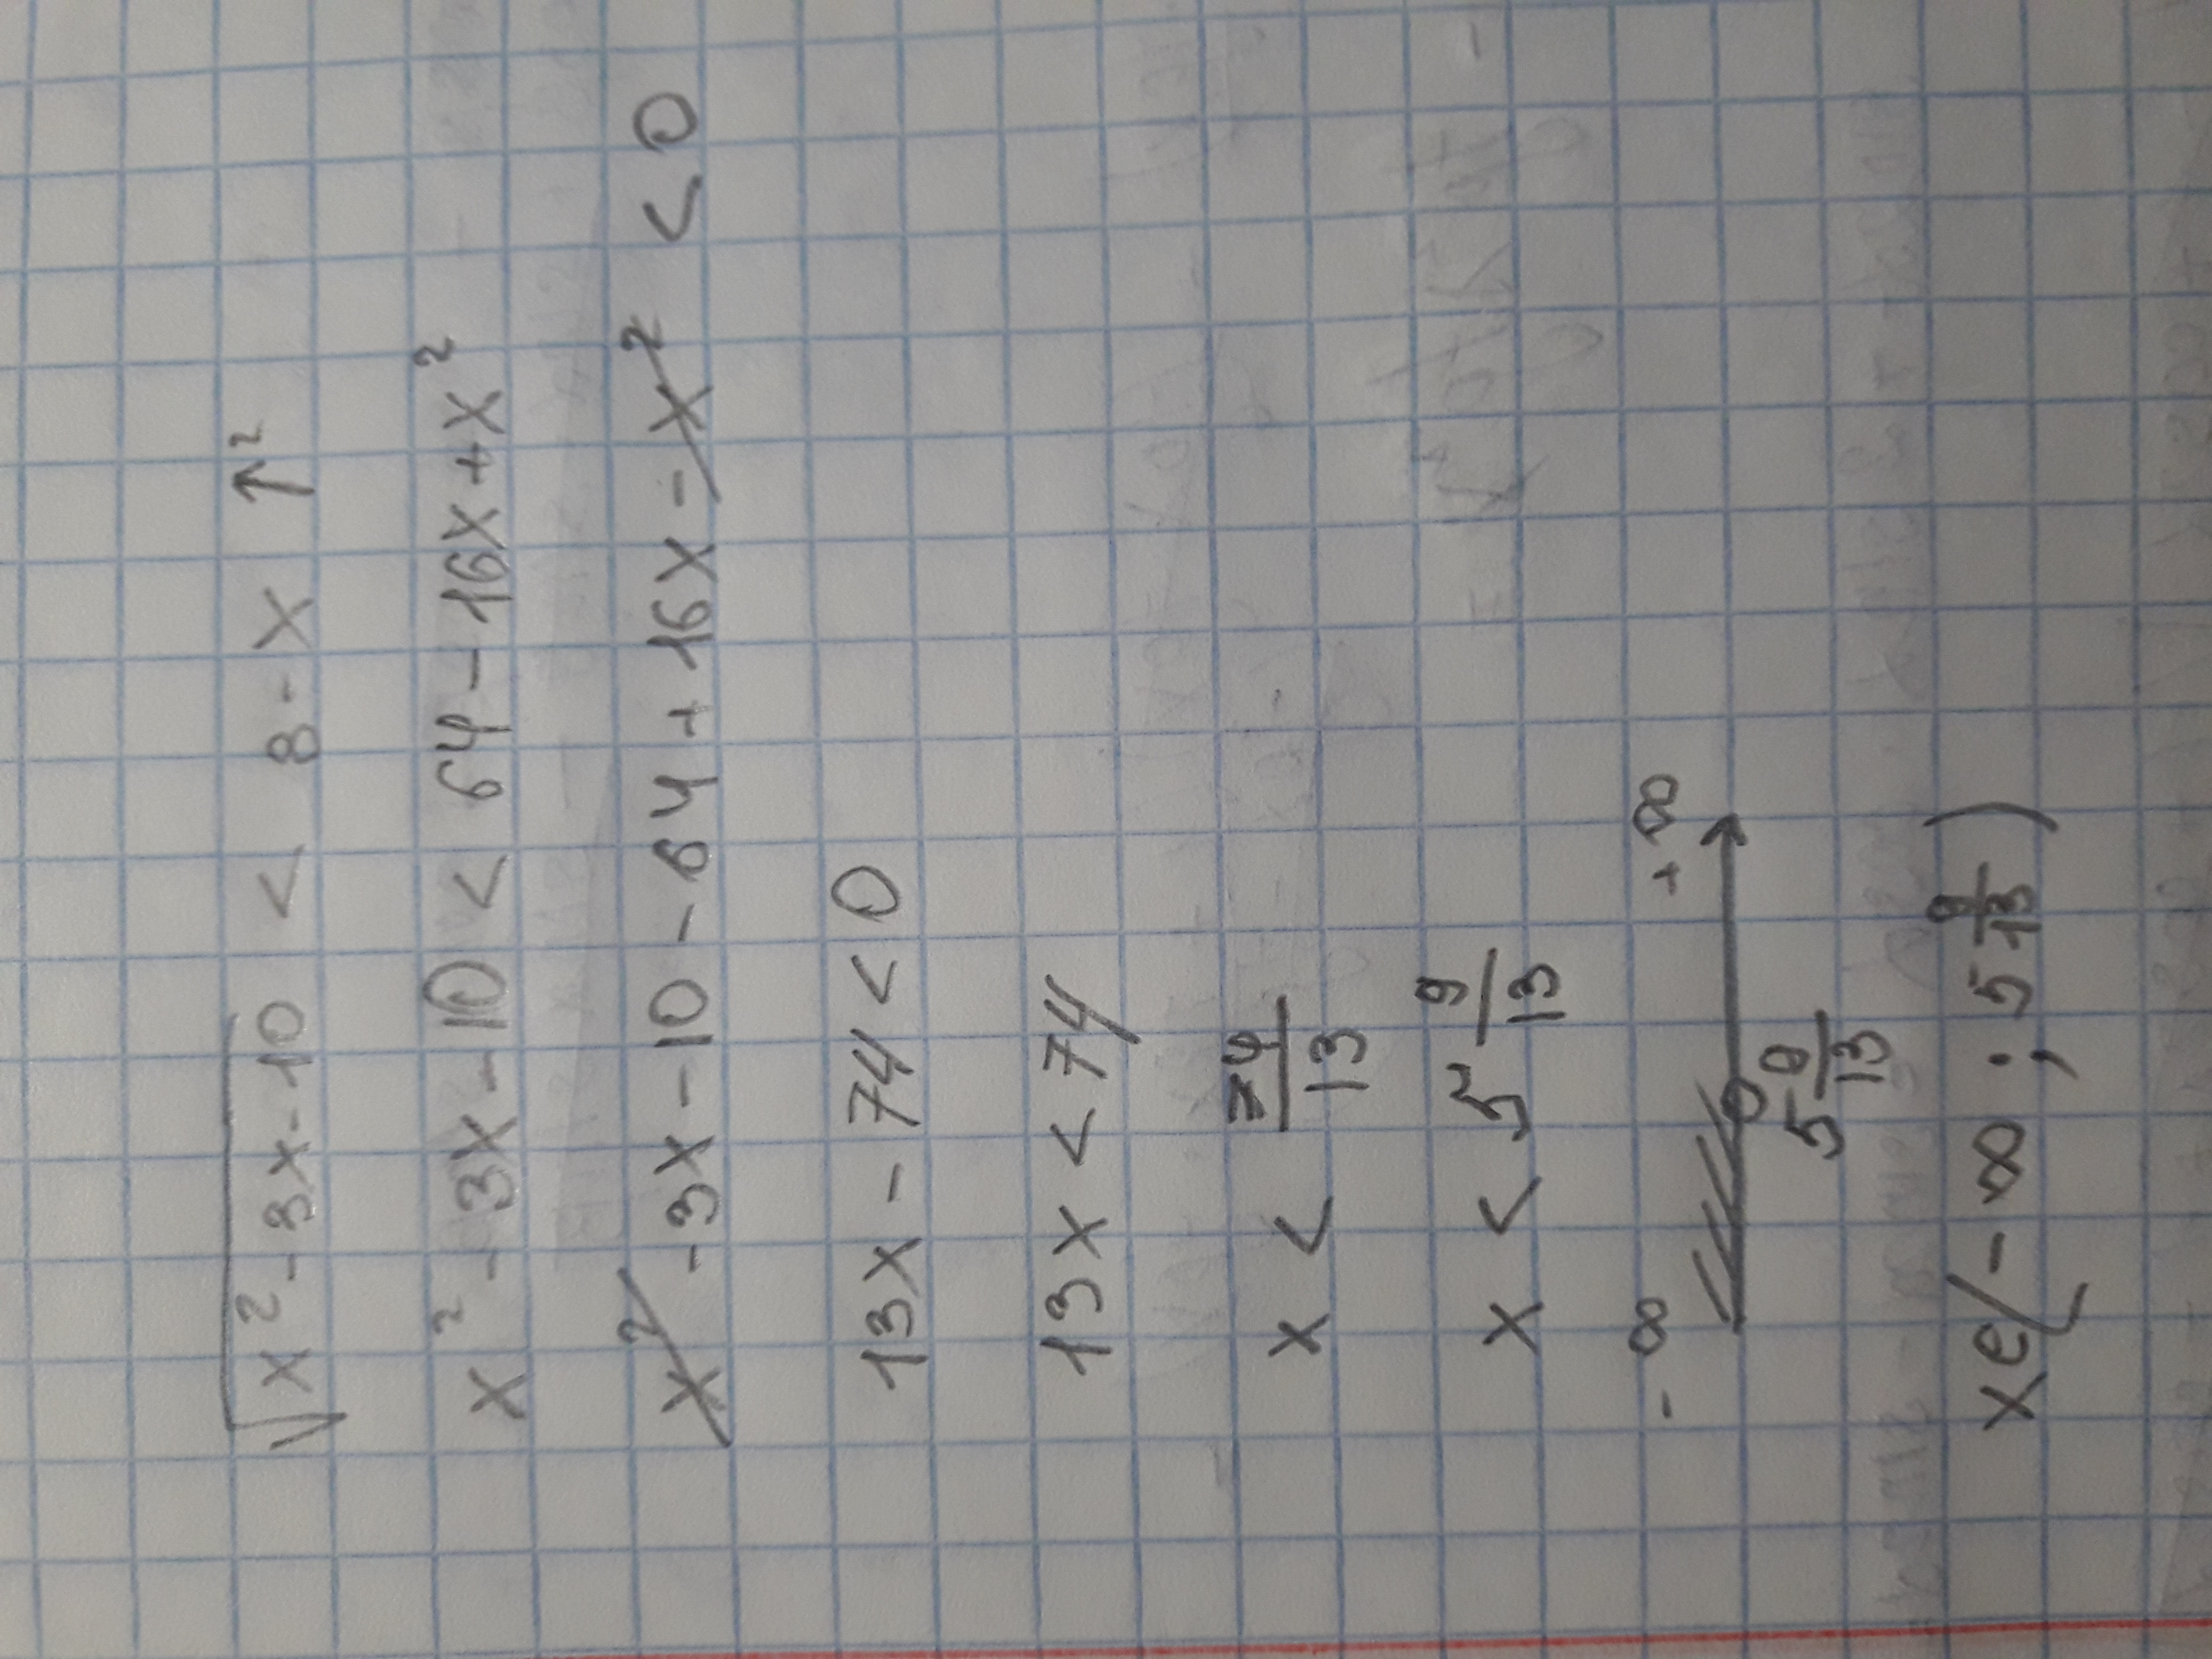 √(x² - 3x - 10) < 8 - x ↑²
x² - 3x - 10 < 64 - 16x + x²
x² - 3x - 10 - 64 + 16x - x² < 0
13x - 74 < 0
13x < 74
x < 74/13
x < 5 9/13
-∞ +∞
5 9/13
x∈(-∞ ; 5 9/13)